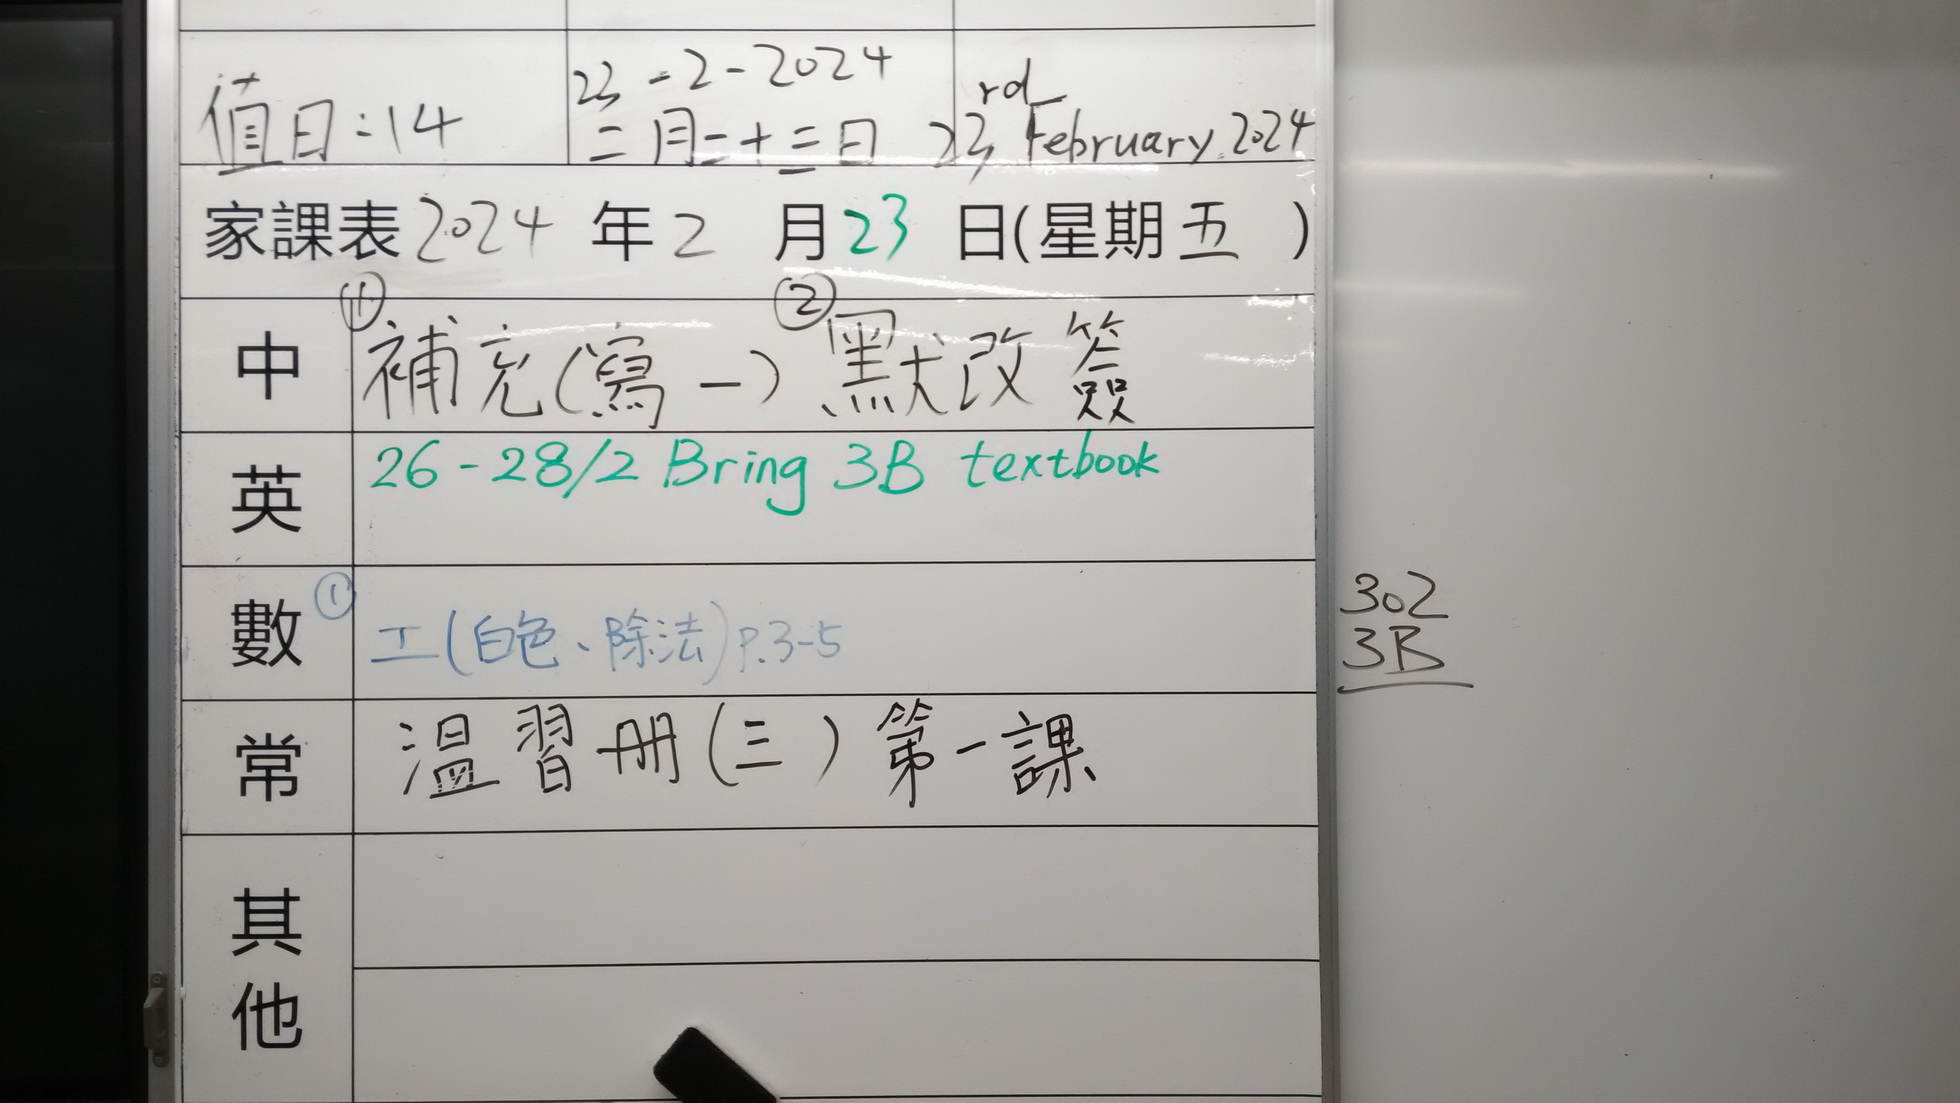 23-2-2024
值日:14
二月二十三日
23rd February 2024
家課表2024年2月23日(星期五)
中 ①補充(寫一) ②默改簽
英 26-28/2 Bring 3B textbook
數 ① 工(白色、除法)P.3-5
常 溫習冊(三)第一課
其他
302
3B